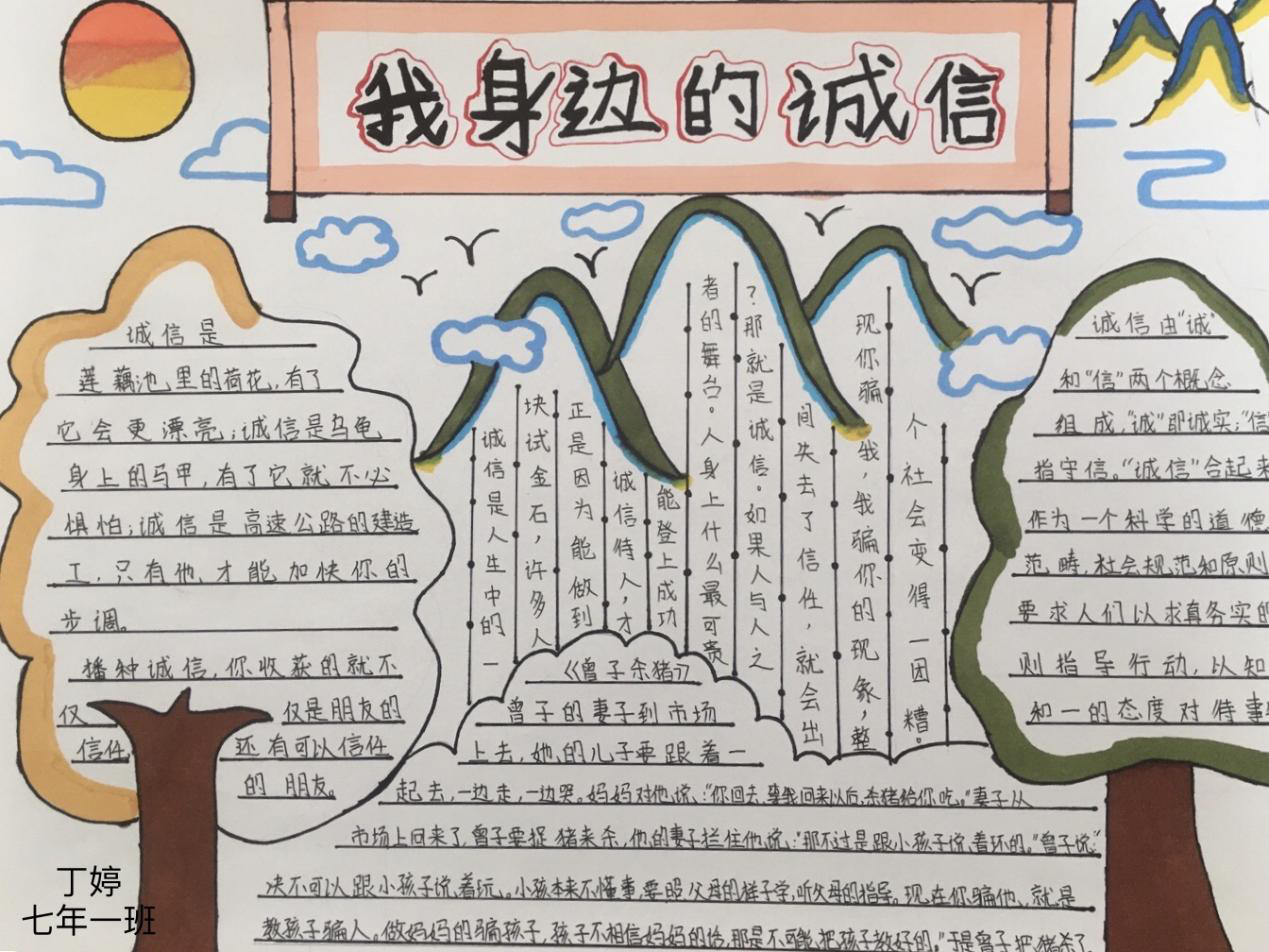 我身边的诚信
诚信是
莲藕池里的荷花，有了
它会更漂亮；诚信是乌龟
身上的马甲，有了它就不必
惧怕；诚信是高速公路的建造
工，只有他，才能加快你的
步调。
播种诚信，你收获的就不
仅 仅是朋友的
信任， 还有可以信任
的朋友。
诚信是人生中的一
块试金石，许多人
正是因为能做到
诚信待人，才
能登上成功
者的舞台。人身上什么最可贵
？那就是诚信。如果人与人之
间失去了信任，就会出
现你骗我，我骗你的现象，整
个社会变得一团糟。
诚信由“诚”
和“信”两个概念
组成，“诚”即诚实；“信”
指守信。“诚信”合起来
作为一个科学的道德
范畴，社会规范和原则
要求人们以求真务实的
则指导行动，以知
和一的态度对待事
《曾子杀猪》
曾子的妻子到市场
上去，她的儿子要跟着一
起去，一边走，一边哭。妈妈对他说：“你回去，等我回来以后，杀猪给你吃。”妻子从
市场上回来了，曾子要捉猪来杀，他的妻子拦住他说：“那不过是跟小孩子说着玩的。”曾子说：“
决不可以跟小孩子说着玩。小孩本来不懂事，要照父母的样子学，听父母的指导。现在你骗他，就是
教孩子骗人。做妈妈的骗孩子，孩子不相信妈妈的话，那是不可能把孩子教好的。”于是曾子把猪杀了
丁婷
七年一班